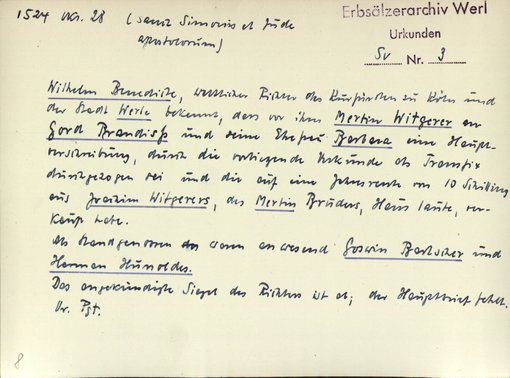 1524 Okt. 28 (sanct Simonis et Jude
apostolorum)
Erbsälzerarchiv Werl
Urkunden
Sv Nr. 3
Wilhelm Benedicte, weltlicher Richter des Kurfürsten zu Köln und
der Stadt Werle bekennt, dass vor ihm Mertin Witgerer an
Gord Brandiss und seine Ehefrau Barbara eine Haupt-
verschreibung, durch die vorliegende Urkunde als Transfix
durchgezogen sei und die auf eine Jahresrente von 10 Schilling
aus Joachim Witgerers, des Mertin Bruders, Haus laute, ver-
kauft habe.
Als Standgenossen waren anwesend Goswin Bartscher und
Herman Hunoldes.
Das angekündigte Siegel des Richters ist ab; der Hauptbrief fehlt.
Or. Pgt.
8